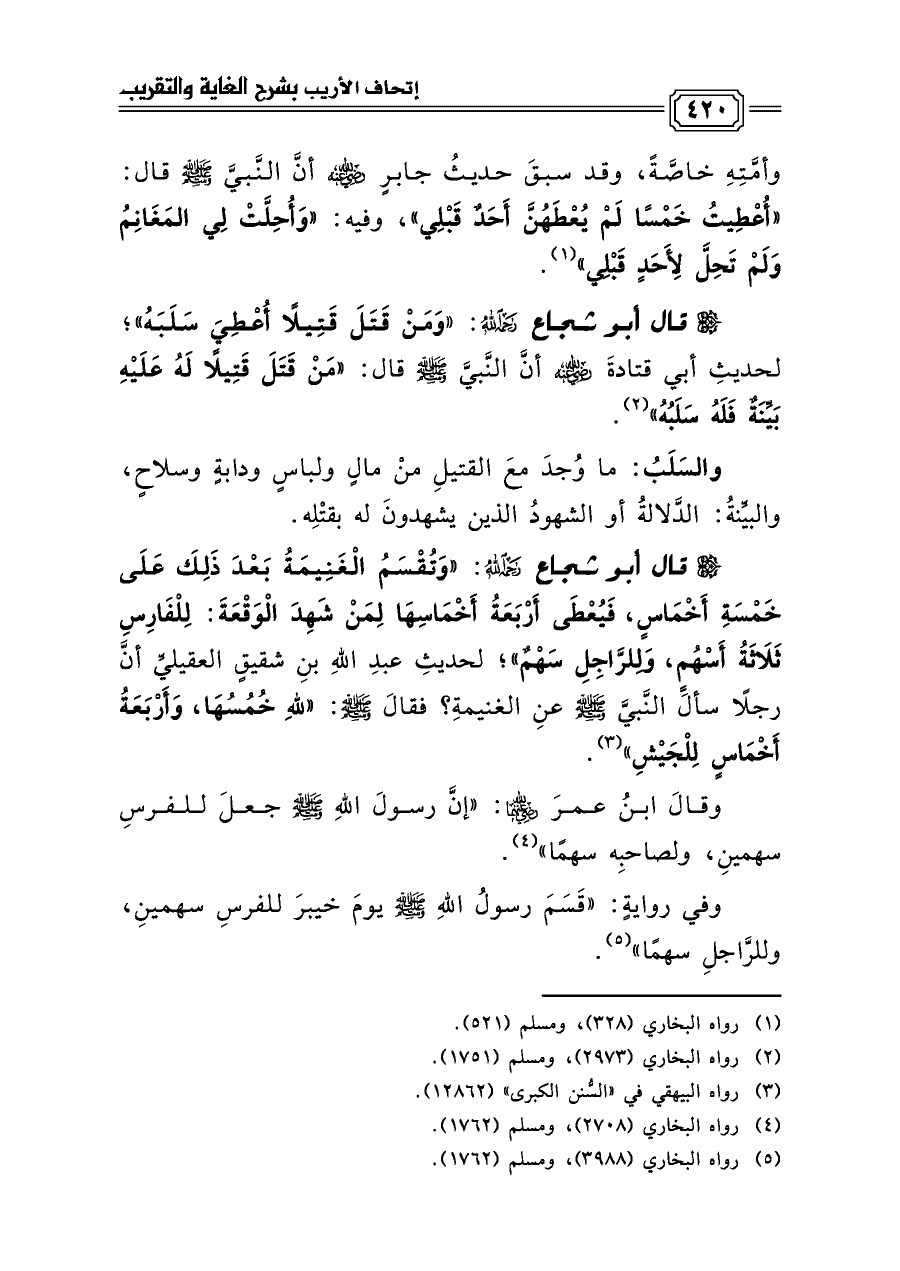 إتحاف الأريب بشرح الغاية والتقريب
٤٢٠
وأمَّتِهِ خاصَّةً، وقد سبقَ حديثُ جابرٍ رضي الله عنه أنَّ النَّبيَّ ﷺ قال:
«أُعْطِيتُ خَمْسًا لَمْ يُعْطَهُنَّ أَحَدٌ قَبْلِي»، وفيه: «وَأُحِلَّتْ لِي المَغَانِمُ
وَلَمْ تَحِلَّ لِأَحَدٍ قَبْلِي»(١).
قال أبو شجاع رحمه الله: «وَمَنْ قَتَلَ قَتِيلًا أُعْطِيَ سَلَبَهُ»؛
لحديثِ أبي قتادةَ رضي الله عنه أنَّ النَّبيَّ ﷺ قال: «مَنْ قَتَلَ قَتِيلًا لَهُ عَلَيْهِ
بَيِّنَةٌ فَلَهُ سَلَبُهُ»(٢).
والسَلَبُ: ما وُجدَ معَ القتيلِ منْ مالٍ ولباسٍ ودابةٍ وسلاحٍ،
والبيِّنةُ: الدَّلالةُ أو الشهودُ الذين يشهدونَ له بقتْلِه.
قال أبو شجاع رحمه الله: «وَتُقْسَمُ الْغَنِيمَةُ بَعْدَ ذَلِكَ عَلَى
خَمْسَةِ أَخْمَاسٍ، فَيُعْطَى أَرْبَعَةُ أَخْمَاسِهَا لِمَنْ شَهِدَ الْوَقْعَةَ: لِلْفَارِسِ
ثَلَاثَةُ أَسْهُمٍ، وَلِلرَّاجِلِ سَهْمٌ»؛ لحديثِ عبدِ اللهِ بنِ شقيقٍ العقيليِّ أنَّ
رجلًا سألَ النَّبيَّ ﷺ عنِ الغنيمةِ؟ فقالَ ﷺ: «للهِ خُمُسُهَا، وَأَرْبَعَةُ
أَخْمَاسٍ لِلْجَيْشِ»(٣).
وقالَ ابنُ عمرَ رضي الله عنهما: «إنَّ رسولَ اللهِ ﷺ جعلَ للفرسِ
سهمينِ، ولصاحبِه سهمًا»(٤).
وفي روايةٍ: «قَسَمَ رسولُ اللهِ ﷺ يومَ خيبرَ للفرسِ سهمينِ،
وللرَّاجلِ سهمًا»(٥).
(١) رواه البخاري (٣٢٨)، ومسلم (٥٢١).
(٢) رواه البخاري (٢٩٧٣)، ومسلم (١٧٥١).
(٣) رواه البيهقي في «السُّنن الكبرى» (١٢٨٦٢).
(٤) رواه البخاري (٢٧٠٨)، ومسلم (١٧٦٢).
(٥) رواه البخاري (٣٩٨٨)، ومسلم (١٧٦٢).